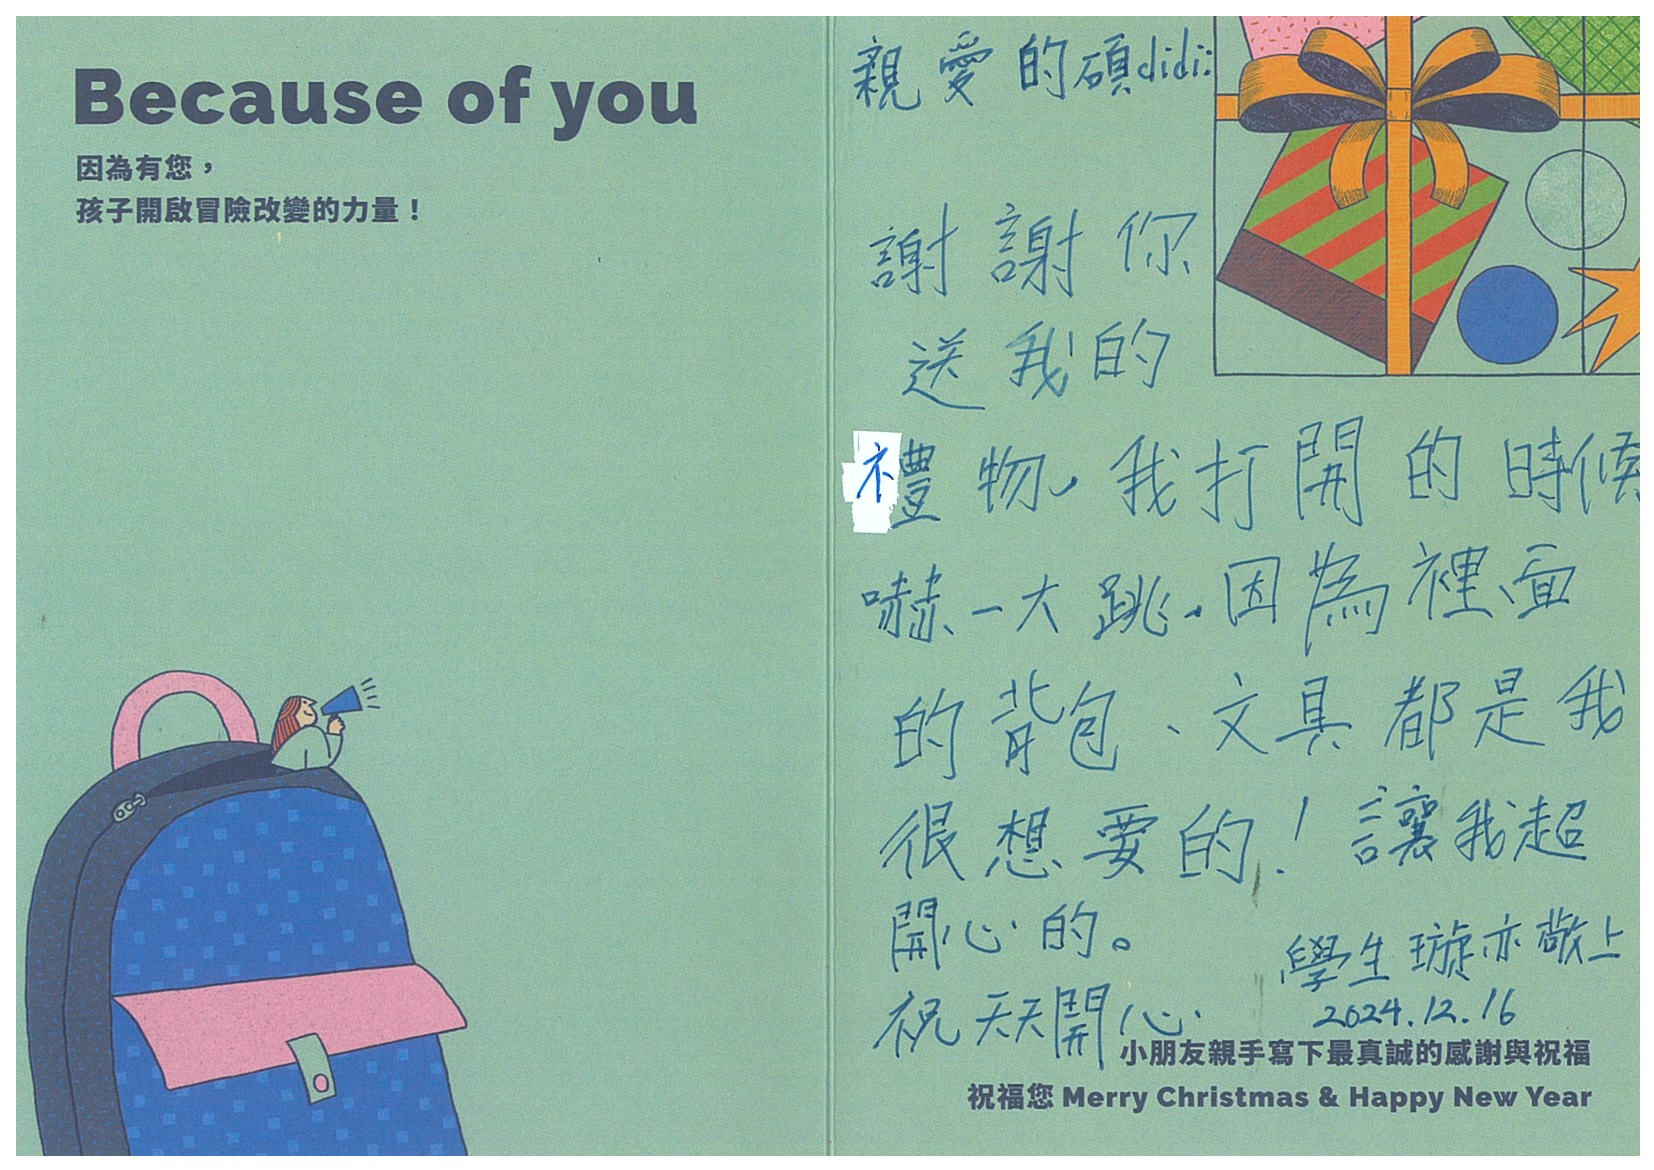 Because of you
因為有您，
孩子開啟冒險改變的力量！
親愛的碩didi:
謝謝你
送我的
禮物，我打開的時候
嚇一大跳，因為裡面
的背包、文具都是我
很想要的！讓我超
開心的。
學生璇亦敬上
祝天天開心
2024.12.16
小朋友親手寫下最真誠的感謝與祝福
祝福您 Merry Christmas & Happy New Year